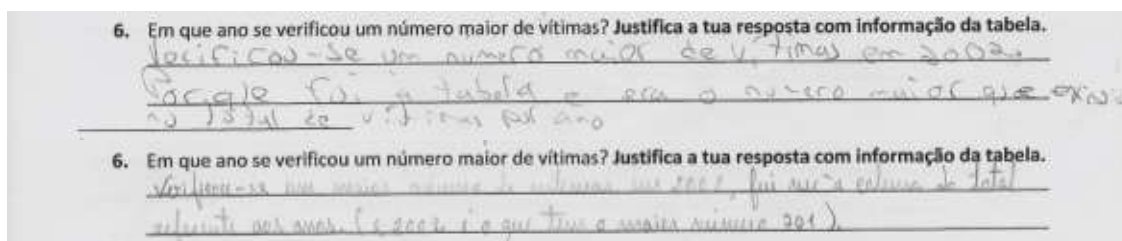 6. Em que ano se verificou um número maior de vítimas? Justifica a tua resposta com informação da tabela.
Verificou-se um numero maior de vitimas em 2002.
Porque fui á tabela e era o numero maior que
no total de vitimas por ano
6. Em que ano se verificou um número maior de vítimas? Justifica a tua resposta com informação da tabela.
Verificou-se um maior número de vítimas em 2002, fui coluna do total
referente aos anos. ( 2002 é o que tem o maior número 201 ).